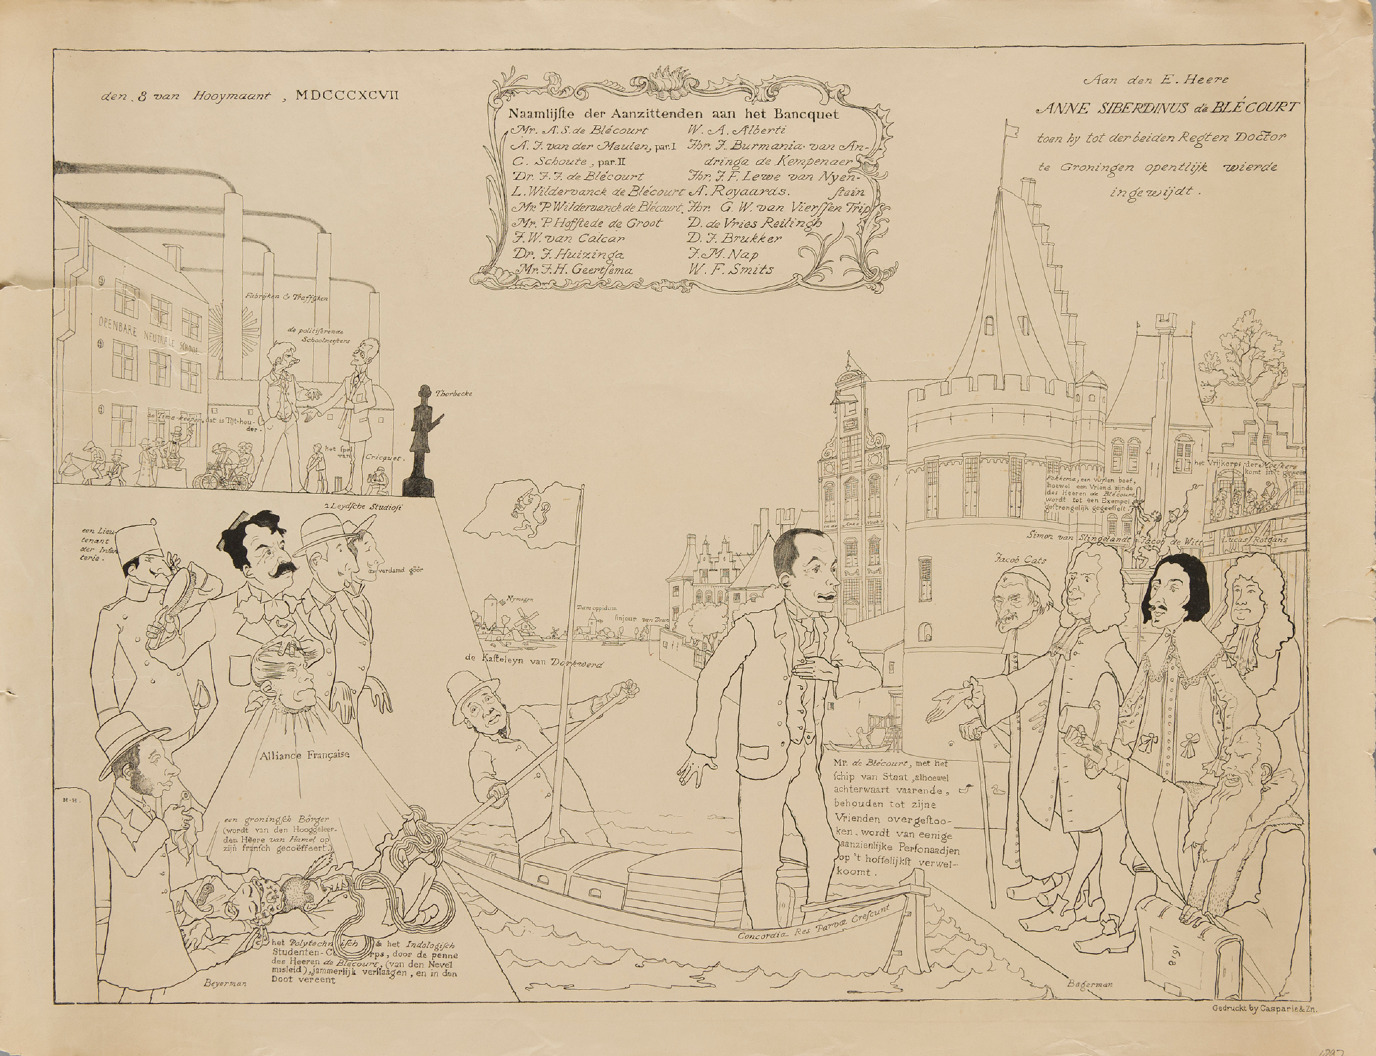 den 8 van Hooymaant, MDCCCXCVII
Naamlijſte der Aanzittenden aan het Bancquet
Mr. A. S. de Blécourt
A. J. van der Meulen, par. I
C. Schoute, par. II
Dr. J. J. de Blécourt
L. Wildervanck de Blécourt
Mr. P. Wildervanck de Blécourt,
Mr. P. Hofſtede de Groot
J. W. van Calcar
Dr. J. Huizinga
Mr. J. H. Geertſema
W. A. Alberti
Jhr. J. Burmania van An-
dringa de Kempenaer
Jhr. J. F. Lewe van Nyen-
ſtein
A. Royaards.
Jhr. G. W. van Vierſſen Trip
D. de Vries Reilingh
D. J. Brukker
J. M. Nap
W. F. Smits
Aan den E. Heere
ANNE SIBERDINUS de BLÉCOURT
toen hy tot der beiden Regten Doctor
te Groningen opentlijk wierde
ingewijdt.
Fabryken & Treffyken
de politiſeerende
Schoolmeeſters
OPENBARE NEUTRALE SCHOOL
de Time-keeper, dat is Tijt-hou-
der.
het ſpel
van
Cricquet.
Thorbecke
2 Leydſche Studioſi
een Lieu
tenant
der Infan
terie.
verdand
Alliance Françaiſe
een groningſch Börger
(wordt van den Hooggeleer-
den Heere van Hamel op
zijn franſch gecoëffeert.)
M.-H.
Beyerman
het Polytechniſch & het Indologiſch
Studenten-Corps, door de penne
des Heeren de Blécourt, (van den Nevel
misleid), jammerlijk verſlaagen, en in den
Doot vereent
de Kaſteleyn van Dorkwerd
Concordia Res Parvæ Creſcunt
Mr. de Blécourt, met het
ſchip van Staat, alhoewel
achterwaart vaarende,
behouden tot zijne
Vrienden overgeſtoo-
ken, wordt van eenige
aanzienlijke Perſonaadjen
op 't hoffelijkſt verwel-
koomt.
het Vrijkorps der
Fokkema, een vuylen boef,
hoewel een Vriend zijnde
des Heeren de Blécourt,
wordt tot een Exempel
geſtrengelijk gegeeſſelt
Simon van Slingelandt
Jacob de Witt
Lucas Rotgans
Jacob Cats
1618
Bogerman
Gedruckt by Casparie & Zn.